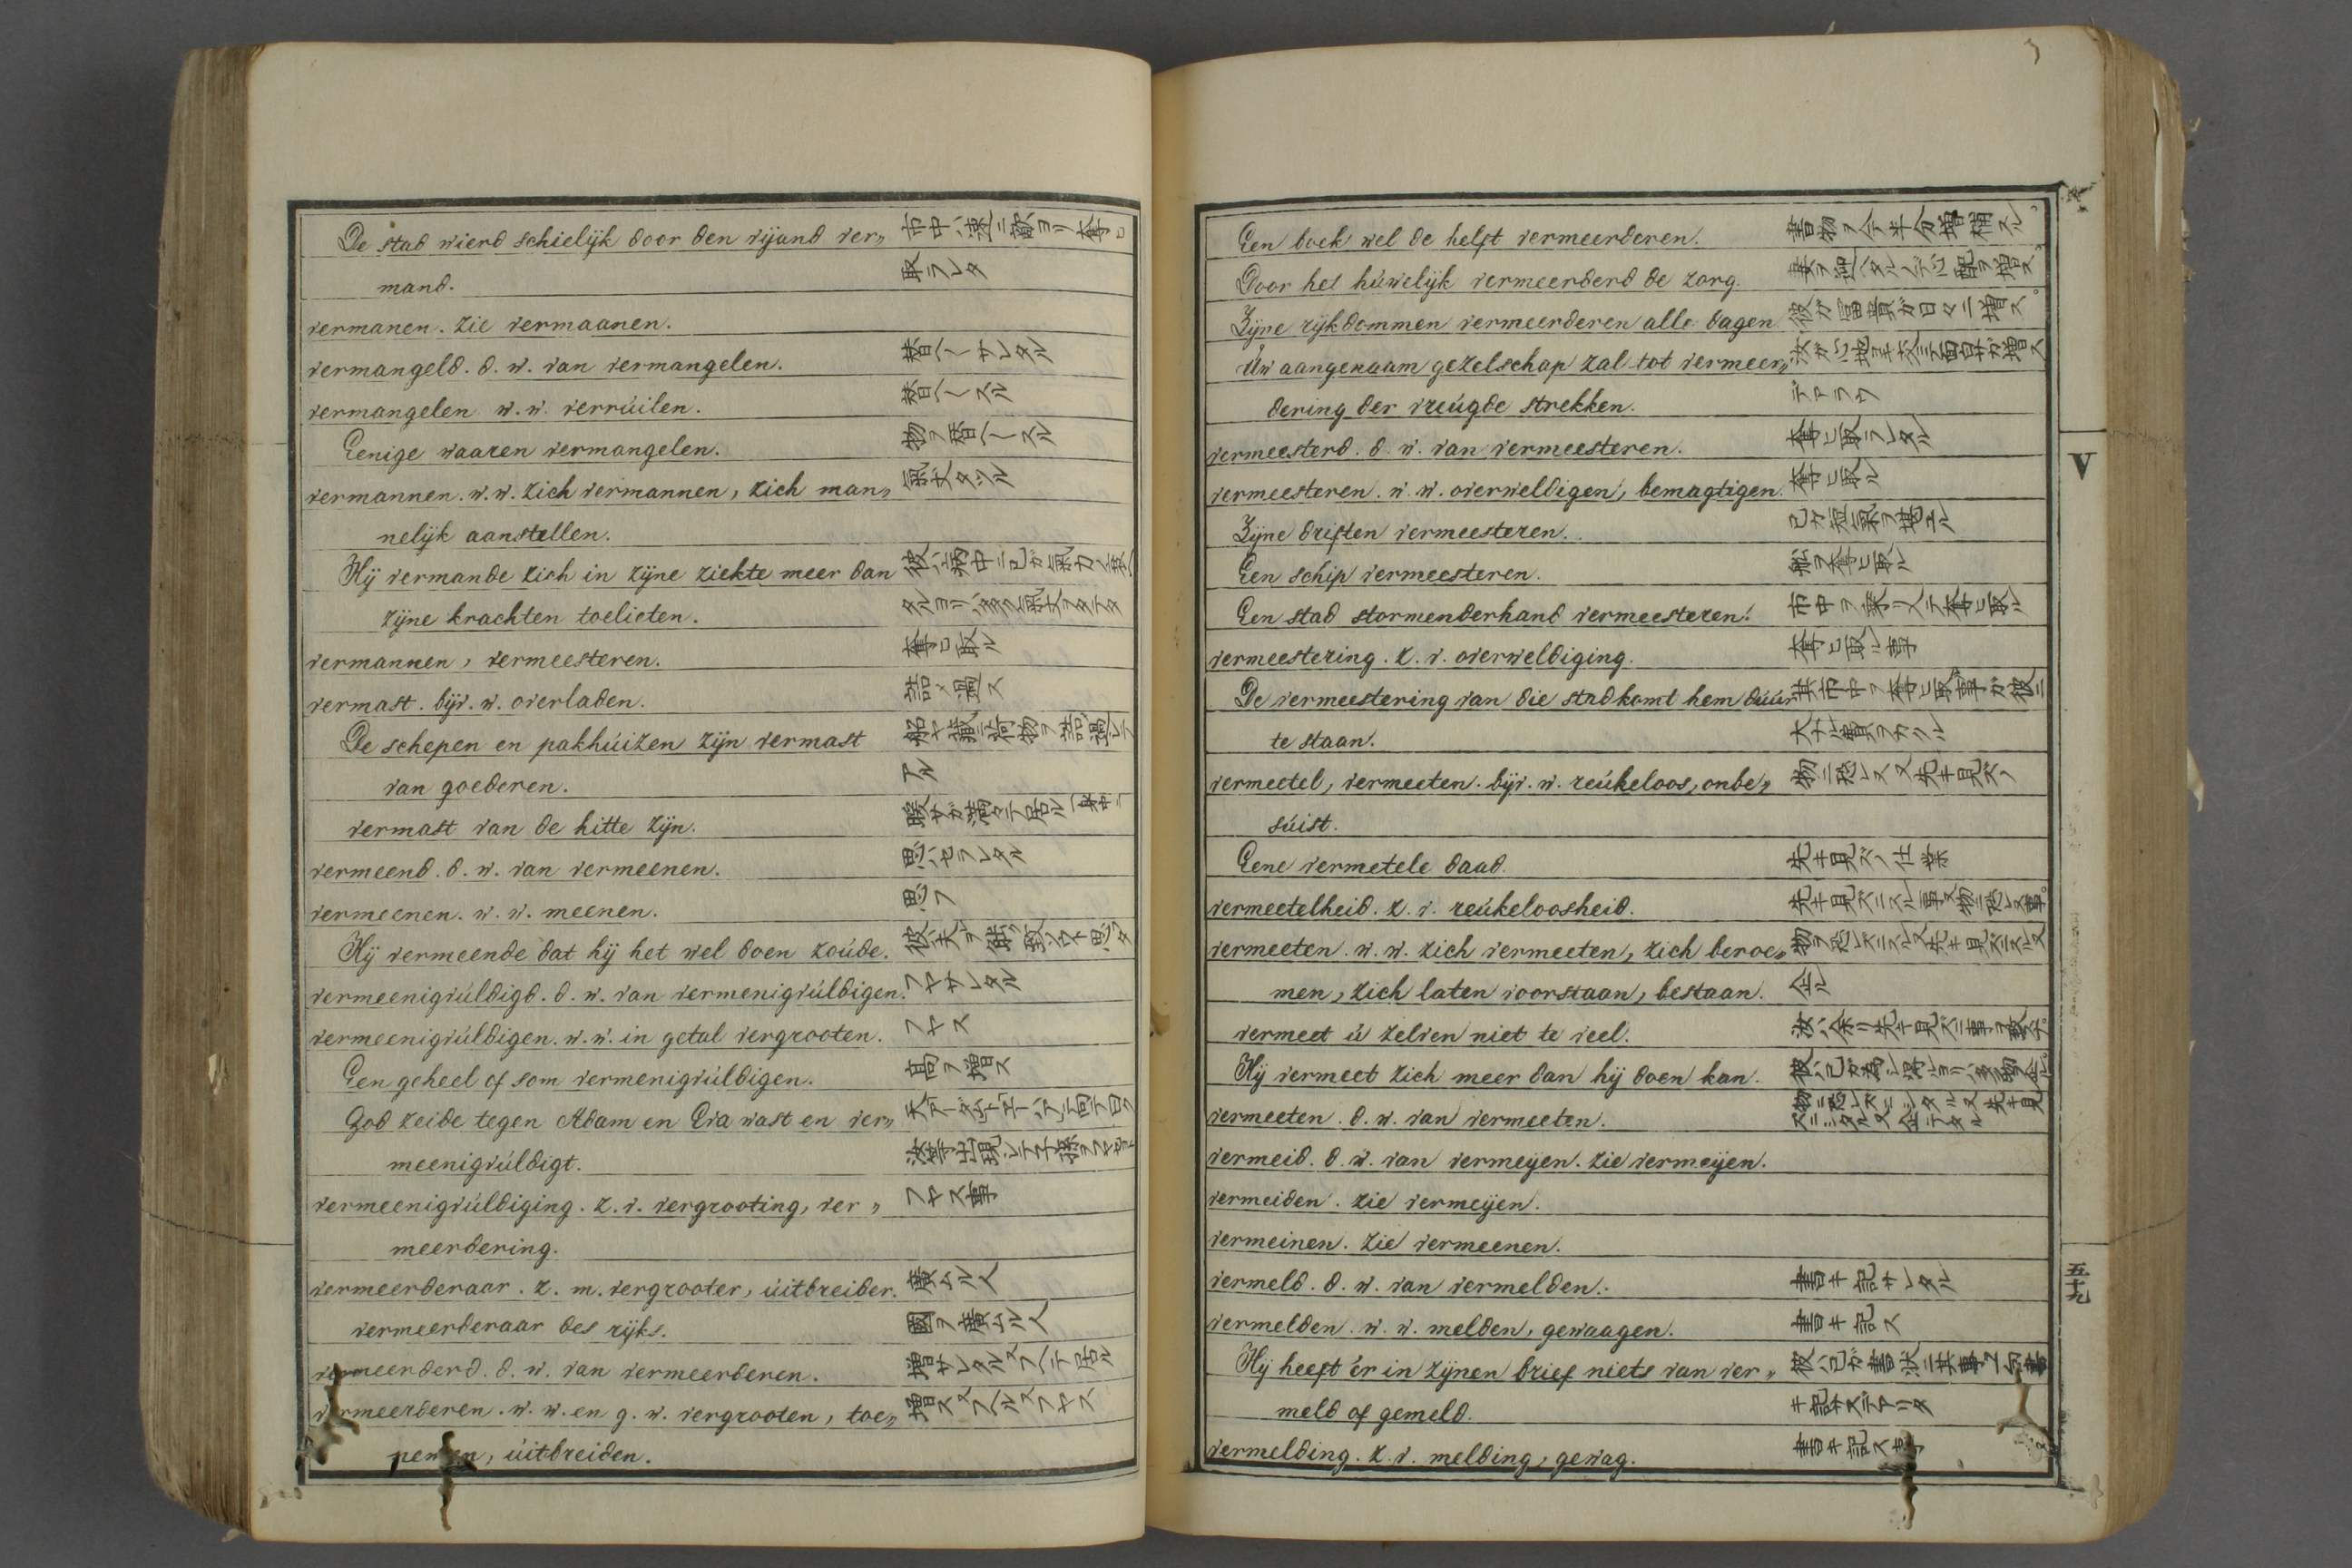 De stad wierd schielijk door den vijand ver„ 市中ハ速ニ敵ヨリ奪ヒ
mand. 取ラレタ
vermanen. zie vermaanen.
vermangeld. d. w. van vermangelen. 替ヘサレタル
vermangelen w. w. verrúilen. 替ヘスル
Eenige waaren vermangelen. 物ヲ替ヘスル
vermannen. w. w. zich vermannen, zich man„
nelijk aanstellen.
Hij vermande zich in zijne ziekte meer dan
zijne krachten toelieten.
vermannen, vermeesteren. 奪ヒ取ル
vermast. bijv. w. overladen. 詰メ過ス
De schepen en pakhúizen zijn vermast
van goederen. アル
vermast van de hitte zijn.
vermeend. d. w. van vermeenen. 思ハセラレタル
vermeenen. w. w. meenen. 思フ
Hij vermeende dat hij het wel doen zoúde.
vermeenigvúldigd. d. w. van vermenigvúldigen. フヤサレタル
vermeenigvúldigen. w. w. in getal vergrooten. フヤス
Een geheel of som vermenigvúldigen. 高ヲ増ス
God zeide tegen Adam en Eva wast en ver„
meenigvúldigt.
vermeenigvúldiging. z. v. vergrooting, ver„ フヤス事
meerdering.
vermeerderaar. z. m. vergrooter, úitbreider. 廣ムル人
vermeerderaar des rijks. 國ヲ廣ムル人
vermeerderd. d. w. van vermeerderen. 増サレタル又フヘテ居ル
vermeerderen. w. w. en g. w. vergrooten, toe„ 増ス又フヘル又フヤス
nemen, úitbreiden.
Een boek wel de helft vermeerderen. 書物ヲ今半分増補スル
Door het húwelijk vermeerderd de zorg.
Zijne rijkdommen vermeerderen alle dagen 彼ガ富貴ガ日々ニ増ス
Uw aangenaam gezelschap zal tot vermeer„
dering der vreúgde strekken. デアラウ
vermeesterd. d. w. van vermeesteren. 奪ヒ取ラレタル
vermeesteren. w. w. overweldigen, bemagtigen. 奪ヒ取ル
Zijne driften vermeesteren. 己ガ短氣ヲ堪エル
Een schip vermeesteren. 船ヲ奪ヒ取ル
Een stad stormenderhand vermeesteren. 市中ヲ乗リ入テ奪ヒ取ル
vermeestering. z. v. overweldiging. 奪ヒ取ル事
De vermeestering van die stad komt hem dúúr 其市中ヲ奪ヒ取事ガ彼ニ
te staan.
vermeetel, vermeeten. bijv. w. reúkeloos, onbe„
súist.
Eene vermetele daad. 先キ見ズノ仕業
vermeetelheid. z. v. reúkeloosheid.
vermeeten. w. w. zich vermeeten, zich beroe„
men, zich laten voorstaan, bestaan. 企ル
vermeet ú zelven niet te veel.
Hij vermeet zich meer dan hij doen kan.
vermeeten. d. w. van vermeeten.
vermeid. d. w. van vermeyen. zie vermeijen.
vermeiden. zie vermeijen.
vermeinen. zie vermeenen.
vermeld. d. w. van vermelden. 書キ記サレタル
vermelden. w. w. melden, gewaagen. 書キ記ス
Hij heeft 'er in zijnen brief niets van ver„
meld of gemeld. キ記サズデアリタ
vermelding. z. v. melding, gewag. 書キ記ス事
V
五十九